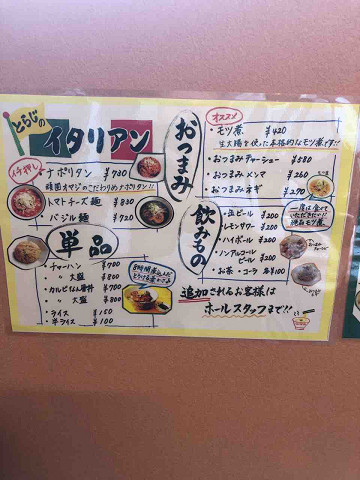 とらじの
イタリアン
イチ押し
ナポリタン ¥730
頑固オヤジのこだわりのナポリタン!!
トマトチーズ麺 ¥830
バジル麺 ¥720
単品
・チャーハン ¥700
・〃 大盛 ¥800
・カルビなんこつ丼 ¥700
・〃 大盛 ¥800
・ライス ¥150
・半ライス ¥100
8時間煮込んだ
おつまみ
オススメ
・モツ煮 ¥420
生大腸を使った本格的なモツ煮です!!
・おつまみチャーシュー ¥580
・おつまみメンマ ¥260
・おつまみネギ ¥270
飲みもの
・缶ビール ¥200
・レモンサワー ¥200
・ハイボール ¥200
・ノンアルコール
ビール ¥200
・お茶・コーラ 各¥100
一度は食べて
いただきたい!!
絶品モツ煮。
追加されるお客様は
ホールスタッフまで!!